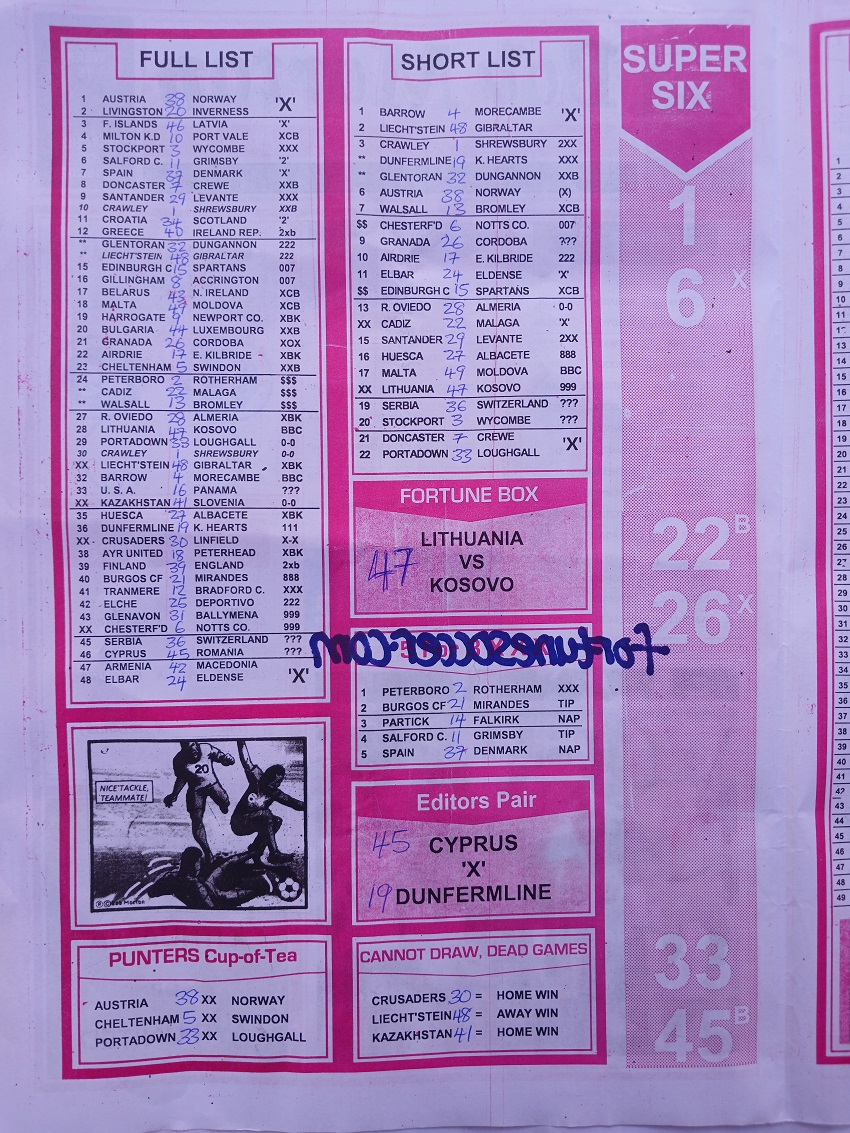 FULL LIST
1 AUSTRIA 38 NORWAY 'X'
2 LIVINGSTON 20 INVERNESS
3 F. ISLANDS 46 LATVIA 'X'
4 MILTON K.D 10 PORT VALE XCB
5 STOCKPORT 3 WYCOMBE XXX
6 SALFORD C. 11 GRIMSBY '2'
7 SPAIN 37 DENMARK 'X'
8 DONCASTER 7 CREWE XXB
9 SANTANDER 29 LEVANTE XXX
10 CRAWLEY 1 SHREWSBURY XXB
11 CROATIA 34 SCOTLAND '2'
12 GREECE 40 IRELAND REP. 2xb
** GLENTORAN 32 DUNGANNON 222
** LIECH'STEIN 48 GIBRALTAR 222
15 EDINBURGH C 15 SPARTANS 007
16 GILLINGHAM 8 ACCRINGTON 007
17 BELARUS 43 N. IRELAND XCB
18 MALTA 49 MOLDOVA XCB
19 HARROGATE 9 NEWPORT CO. XBK
20 BULGARIA 44 LUXEMBOURG XXB
21 GRANADA 26 CORDOBA XOX
22 AIRDRIE 17 E. KILBRIDE XBK
23 CHELTENHAM 5 SWINDON XXB
24 PETERBORO 2 ROTHERHAM $$$
** CADIZ 22 MALAGA $$$
** WALSALL 13 BROMLEY $$$
27 R. OVIEDO 28 ALMERIA XBK
28 LITHUANIA 47 KOSOVO BBC
29 PORTADOWN 33 LOUGHGALL 0-0
30 CRAWLEY 1 SHREWSBURY 0-0
XX LIECH'STEIN 48 GIBRALTAR XBK
32 BARROW 4 MORECAMBE BBC
33 U. S. A. 16 PANAMA ???
XX KAZAKHSTAN 41 SLOVENIA 0-0
35 HUESCA 27 ALBACETE XBK
36 DUNFERMLINE 19 K. HEARTS 111
XX CRUSADERS 30 LINFIELD X-X
38 AYR UNITED 18 PETERHEAD XBK
39 FINLAND 39 ENGLAND 2xb
40 BURGOS CF 21 MIRANDES 888
41 TRANMERE 12 BRADFORD C. XXX
42 ELCHE 25 DEPORTIVO 222
43 GLENAVON 31 BALLYMENA 999
XX CHESTERF'D 6 NOTTS CO. 999
45 SERBIA 36 SWITZERLAND ???
46 CYPRUS 45 ROMANIA ???
47 ARMENIA 42 MACEDONIA
48 ELBAR 24 ELDENSE 'X'
NICE TACKLE, TEAMMATE!
20
PUNTERS Cup-of-Tea
AUSTRIA 38 XX NORWAY
CHELTENHAM 5 XX SWINDON
PORTADOWN 33 XX LOUGHGALL
SHORT LIST
1 BARROW 4 MORECAMBE 'X'
2 LIECHT'STEIN 48 GIBRALTAR
3 CRAWLEY 1 SHREWSBURY 2XX
** DUNFERMLINE 19 K. HEARTS XXX
** GLENTORAN 32 DUNGANNON XXB
6 AUSTRIA 38 NORWAY (X)
7 WALSALL 13 BROMLEY XCB
$$ CHESTERF'D 6 NOTTS CO. 007
9 GRANADA 26 CORDOBA ???
10 AIRDRIE 17 E. KILBRIDE 222
11 ELBAR 24 ELDENSE 'X'
$$ EDINBURGH C 15 SPARTANS XCB
13 R. OVIEDO 28 ALMERIA 0-0
XX CADIZ 22 MALAGA 'X'
15 SANTANDER 29 LEVANTE 2XX
16 HUESCA 27 ALBACETE 888
17 MALTA 49 MOLDOVA BBC
XX LITHUANIA 47 KOSOVO 999
19 SERBIA 36 SWITZERLAND ???
20 STOCKPORT 3 WYCOMBE ???
21 DONCASTER 7 CREWE 'X'
22 PORTADOWN 33 LOUGHGALL
FORTUNE BOX
LITHUANIA
47 VS
KOSOVO
fortunesoccer.com
1 PETERBORO 2 ROTHERHAM XXX
2 BURGOS CF 21 MIRANDES TIP
3 PARTICK 14 FALKIRK NAP
4 SALFORD C. 11 GRIMSBY TIP
5 SPAIN 37 DENMARK NAP
Editors Pair
45 CYPRUS
'X'
19 DUNFERMLINE
CANNOT DRAW, DEAD GAMES
CRUSADERS 30 = HOME WIN
LIECHT'STEIN 48 = AWAY WIN
KAZAKHSTAN 41 = HOME WIN
SUPER
SIX
1
6 X
22 B
26 X
33
45 B
1
2
3
4
5
6
7
8
9
10
11
12
13
14
15
16
17
18
19
20
21
22
23
24
25
26
27
28
29
30
31
32
33
34
35
36
37
38
39
40
41
42
43
44
45
46
47
48
49